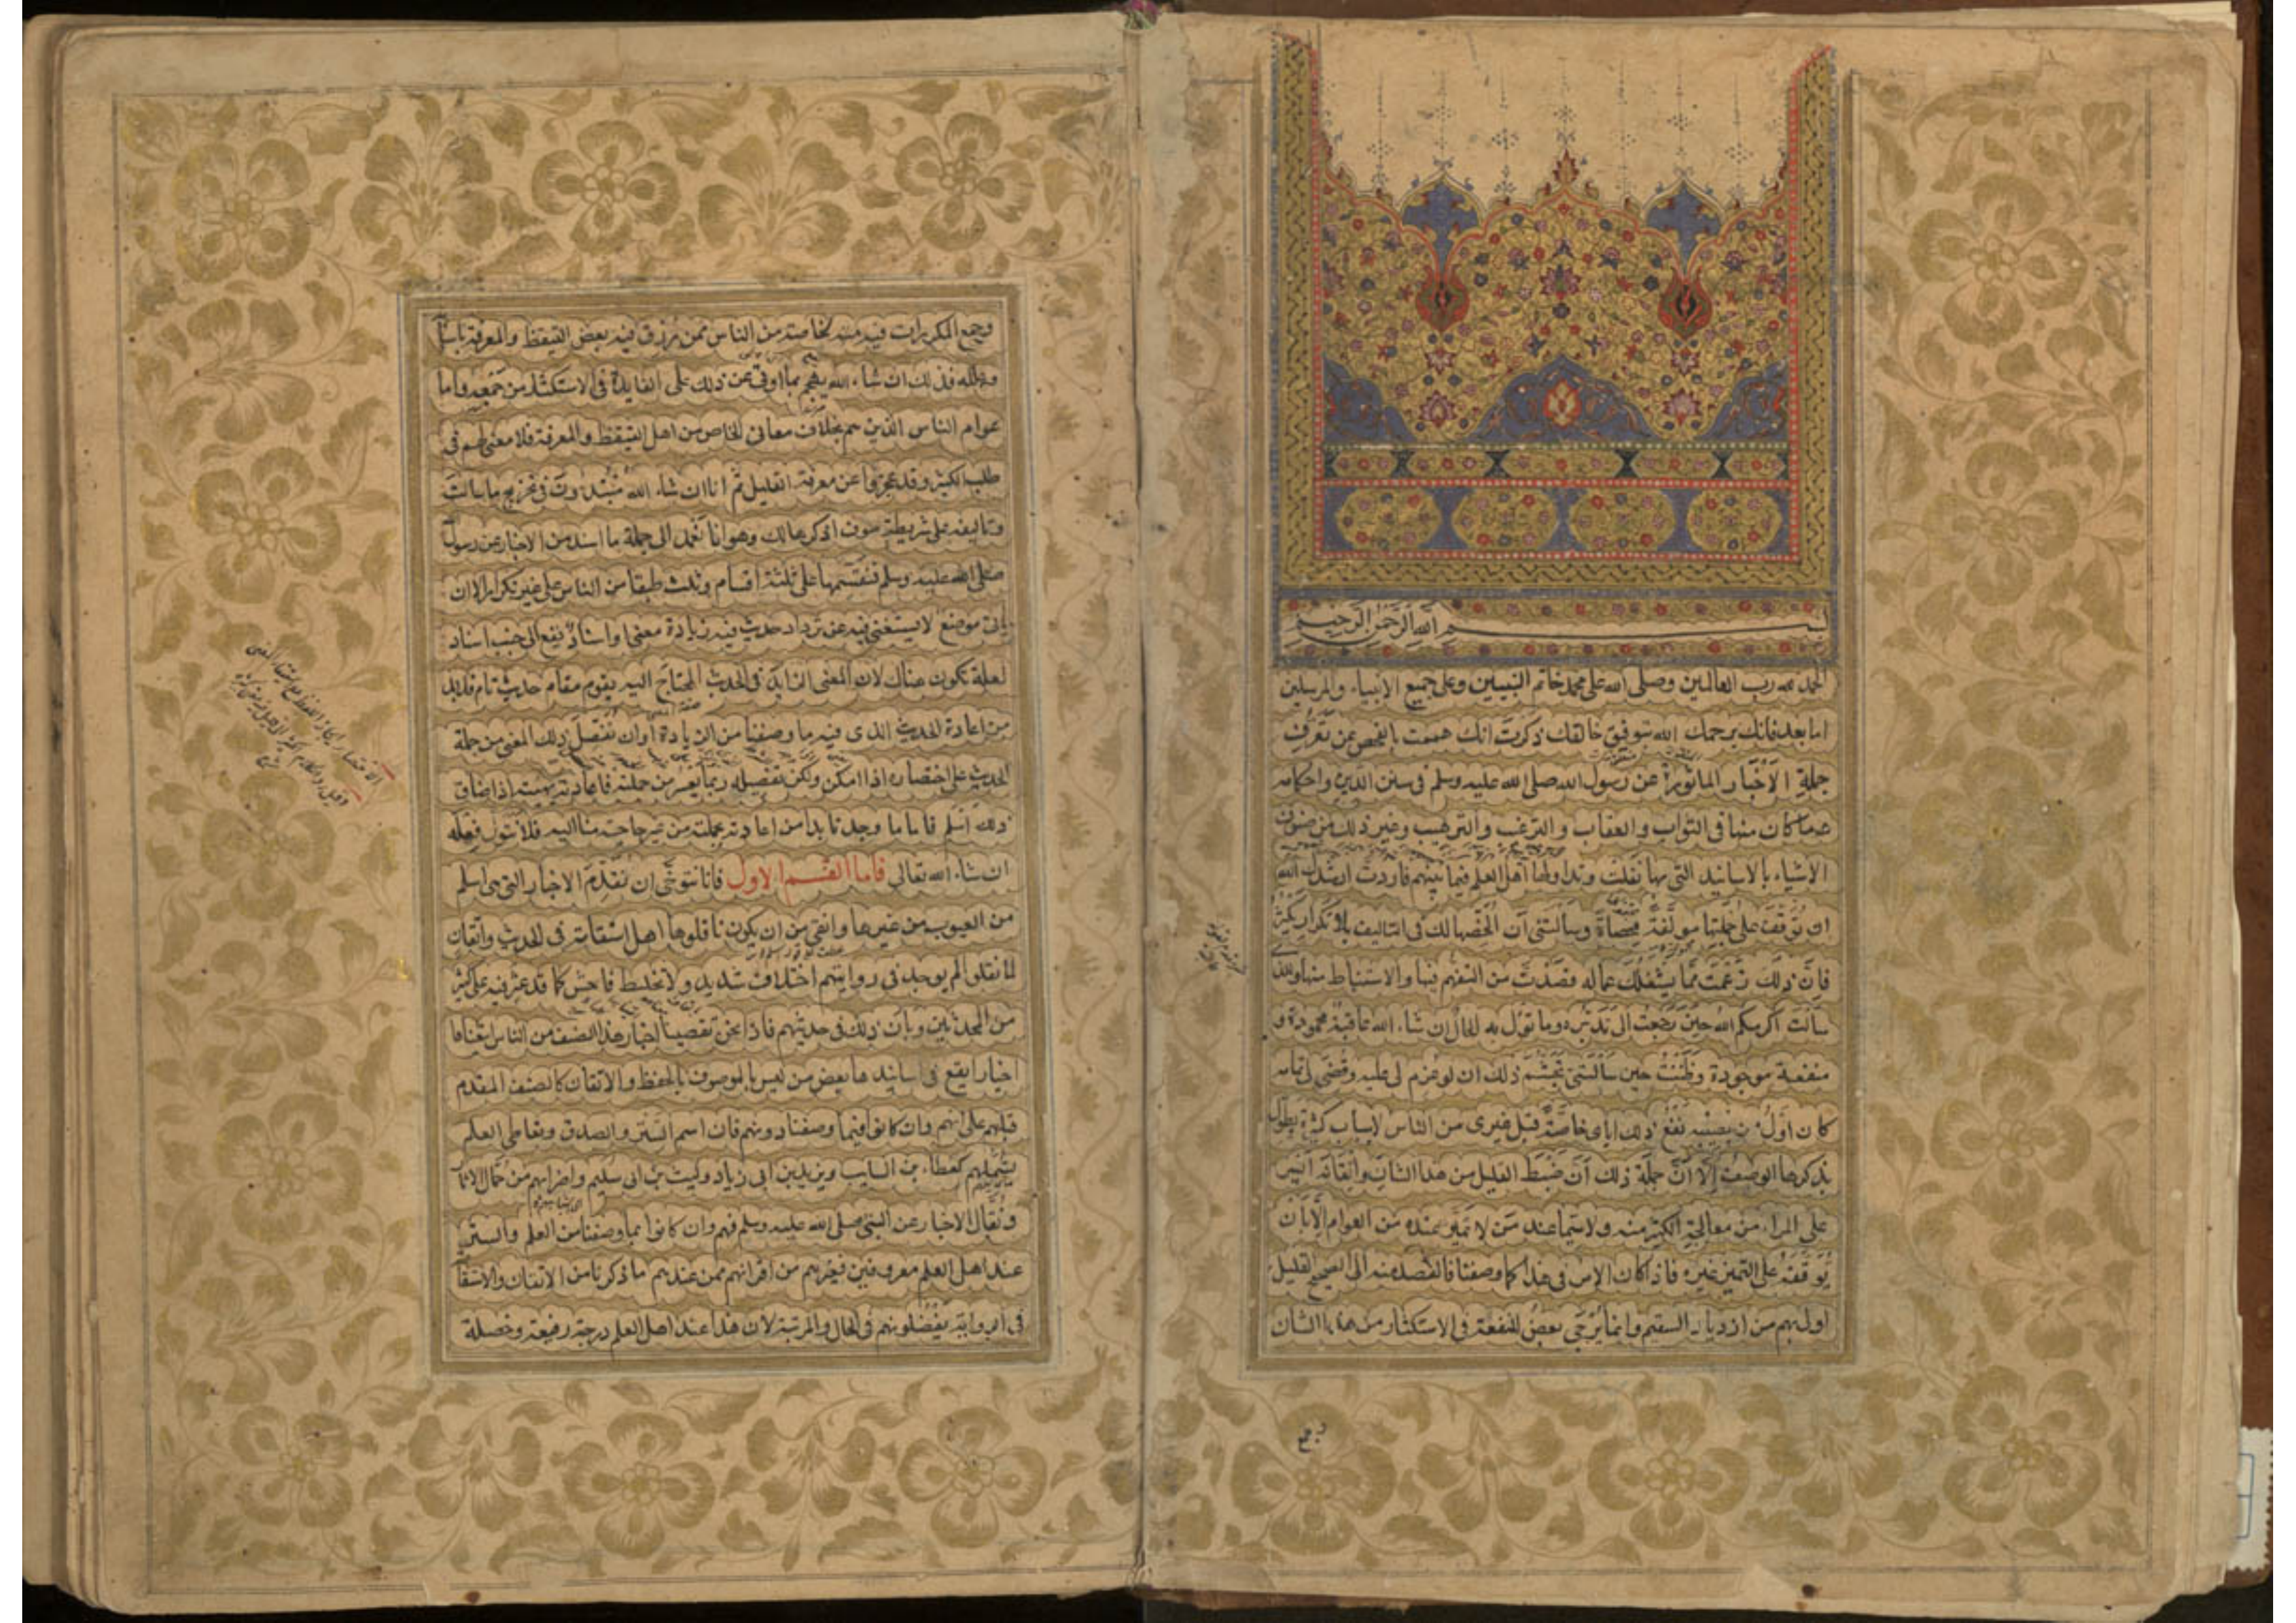 بسم الله الرحمن الرحيم
الحمد لله رب العالمين وصلى الله على محمد خاتم النبيين وعلى جميع الانبياء والمرسلين
اما بعد فانك يرحمك الله بتوفيق خالقك ذكرت انك هممت بالفحص عن تعرف
جملة الاخبار الماثورة عن رسول الله صلى الله عليه وسلم فى سنن الدين واحكامه
وما كان منها فى الثواب والعقاب والترغيب والترهيب وغير ذلك من صنوف
الاشياء بالاسانيد التى بها نقلت وتداولها اهل العلم فيما بينهم فاردت ارشدك الله
ان توقف على جملتها مولفة محصاة وسالتنى ان الخصها لك فى التاليف بلا تكرار يكثر
فان ذلك زعمت مما يشغلك عما له قصدت من التفهم فيها والاستنباط منها وللذى
سالت اكرمكم الله حين رجعت الى تدبره وما تؤل به الحال ان شاء الله عاقبة محمودة و
منفعة موجودة وظننت حين سالتنى تجشم ذلك ان لو عزم لى عليه وقضى لى تمامه
كان اول من يصيبه نفع ذلك اياى خاصة قبل غيرى من الناس لاسباب كثيرة يطول
بذكرها الوصف الا ان جملة ذلك ان ضبط القليل من هذا الشان واتقانه ايسر
على المراء من معالجة الكثير منه ولا سيما عند من لا تميز عنده من العوام الا بان
يوقفه على التميز غيره فاذا كان الامر فى هذا كما وصفنا فالقصد منه الى الصحيح القليل
اولى بهم من ازدياد السقيم وانما يرجى بعض المنفعة فى الاستكثار من هذا الشان
وجمع المكررات فيه منه لخاصة من الناس ممن رزق فيه بعض التيقظ والمعرفة باسبا
وعلله فذلك ان شاء الله يهجم بما اوتى من ذلك على الفايدة فى الاستكثار من جمعه واما
عوام الناس الذين هم بخلاف معانى الخاص من اهل التيقظ والمعرفة فلا معنى لهم فى
طلب الكثير وقد عجزوا عن معرفة القليل ثم انا ان شاء الله مبتدؤن فى تخريج ما سالت
وتاليفه على شريطة سوف اذكرها لك وهو انا نعمد الى جملة ما اسند من الاخبار عن رسول
صلى الله عليه وسلم فنقسمها على ثلثة اقسام وثلث طبقا من الناس على غير تكرار الا ان
ياتى موضع لا يستغنى فيه عن ترداد حديث فيه زيادة معنى او اسناد يقع الى جنب اسناد
لعلة تكون هناك لان المعنى الزايد فى الحديث المحتاج اليه يقوم مقام حديث تام فلابد
من اعادة الحديث الذى فيه ما وصفنا من الزيادة او ان نفصل ذلك المعنى من جملة
الحديث على اختصاره اذا امكن ولكن تفصيله ربما يعسر من جملته فاعادته بهيئته اذا ضاق
ذلك اسلم فاما ما وجدنا بدا من اعادته بجملته من غير حاجة منا اليه فلا نتولى فعله
ان شاء الله تعالى فاما القسم الاول فانا نتوخى ان نقدم الاخبار التى هى اسلم
من العيوب من غيرها وانقى من ان يكون ناقلوها اهل استقامة فى الحديث واتقان
لما نقلوا لم يوجد فى روايتهم اختلاف شديد ولا تخليط فاحش كما قد عثر فيه على كثير
من المحدثين وبان ذلك فى حديثهم فاذا نحن تقصينا اخبار هذا الصنف من الناس اتبعناها
اخبارا يقع فى اسانيدها بعض من ليس بالموصوف بالحفظ والاتقان كالصنف المقدم
قبلهم على انهم وان كانوا فيما وصفنا دونهم فان اسم الستر والصدق وتعاطى العلم
يشملهم كعطاء بن السايب ويزيد بن ابى زياد وليث بن ابى سليم واضرابهم من حمال الاثا
ونقال الاخبار عن النبى صلى الله عليه وسلم فهم وان كانوا بما وصفنا من العلم والستر
عند اهل العلم معروفين فغيرهم من اقرانهم ممن عندهم ما ذكرنا من الاتقان والاستقا
فى الرواية يفضلونهم فى الحال والمرتبة لان هذا عند اهل العلم درجة رفيعة وخصلة